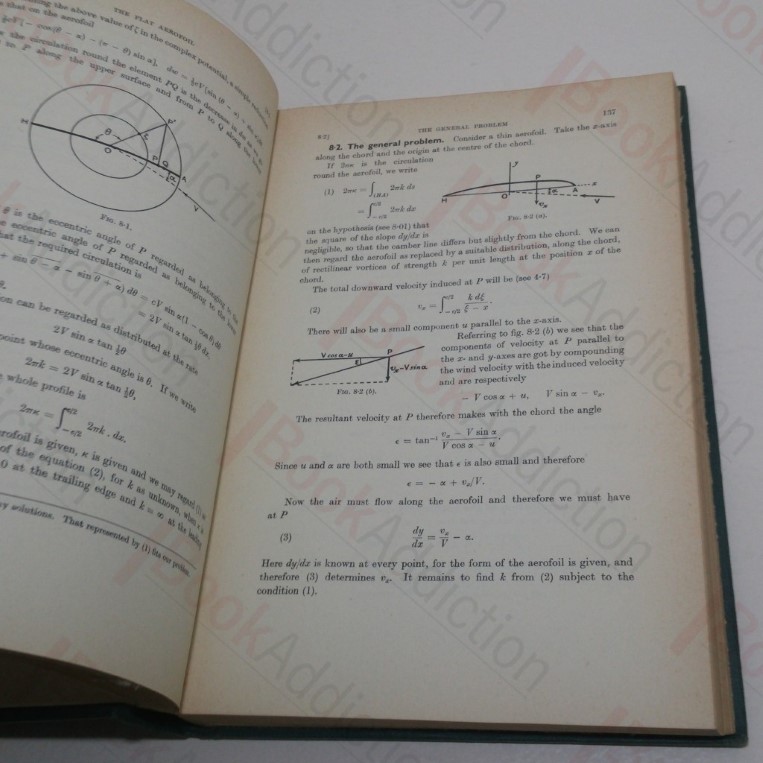 THE FLAT AEROFOIL
the above value of ζ in the complex potential, a single
that on the aerofoil
the circulation round the element PQ is the decrease in
P along the upper surface and from P to Q along the
H
θ
O
ζ
P'
P
Q
A
α
V
FIG. 8·1.
θ is the eccentric angle of P regarded as belonging to the
eccentric angle of P regarded as belonging to the
hat the required circulation is
+ sin θ − α − sin θ + α) dθ = cV sin α(1 − cos θ) dθ
= 2V sin α tan ½θ dx
on can be regarded as distributed at the rate
2V sin α tan ½θ
point whose eccentric angle is θ. If we write
2πk = 2V sin α tan ½θ,
whole profile is
2πκ = ∫ c/2 −c/2 2πk . dx.
rofoil is given, κ is given and we may regard
of the equation (2), for k as unknown, when
0 at the trailing edge and k = ∞ at the leading
y solutions. That represented by (1) fits our problem.
8·2]
THE GENERAL PROBLEM
157
8·2. The general problem. Consider a thin aerofoil. Take the x-axis
along the chord and the origin at the centre of the chord.
If 2πκ is the circulation
round the aerofoil, we write
(1) 2πκ = ∫(HA) 2πk ds
= ∫ c/2 −c/2 2πk dx
y
P
H
O
A
x
α
vx
V
FIG. 8·2 (a).
on the hypothesis (see 8·01) that
the square of the slope dy/dx is
negligible, so that the camber line differs but slightly from the chord. We can
then regard the aerofoil as replaced by a suitable distribution, along the chord,
of rectilinear vortices of strength k per unit length at the position x of the
chord.
The total downward velocity induced at P will be (see 4·7)
(2) vx = ∫ c/2 −c/2 k dξ / ξ − x.
There will also be a small component u parallel to the x-axis.
Referring to fig. 8·2 (b) we see that the
components of velocity at P parallel to
the x- and y-axes are got by compounding
the wind velocity with the induced velocity
and are respectively
V cos α−u
P
ε
vx−V sin α
FIG. 8·2 (b).
− V cos α + u, V sin α − vx.
The resultant velocity at P therefore makes with the chord the angle
ε = tan−1 vx − V sin α / V cos α − u.
Since u and α are both small we see that ε is also small and therefore
ε = − α + vx/V.
Now the air must flow along the aerofoil and therefore we must have
at P
(3) dy/dx = vx/V − α.
Here dy/dx is known at every point, for the form of the aerofoil is given, and
therefore (3) determines vx. It remains to find k from (2) subject to the
condition (1).
BookAddiction